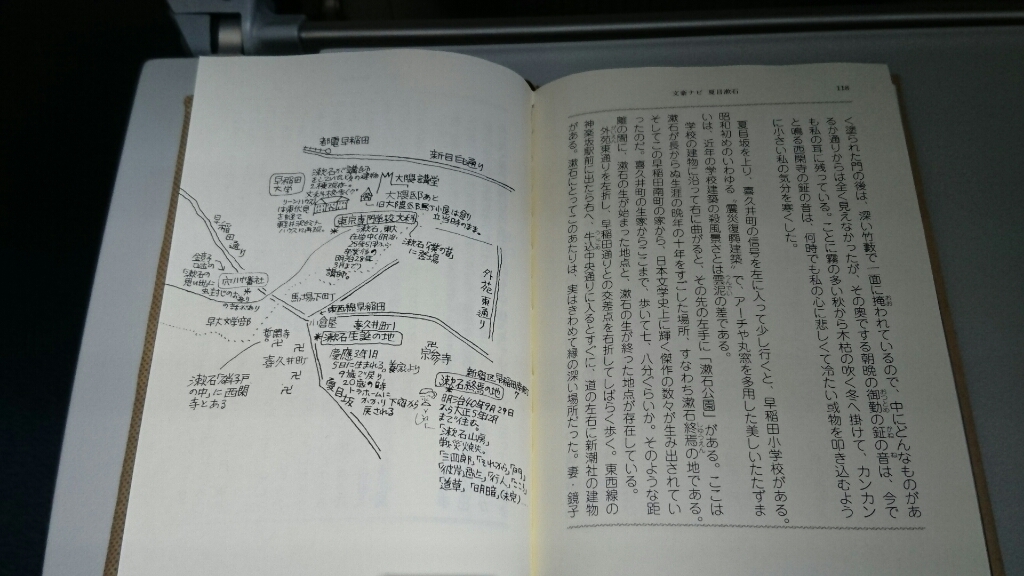 118
文豪ナビ 夏目漱石
く塗られた門の後は、深い竹藪で一面に掩われているので、中にどんなものがあ
るか通りからは全く見えなかったが、その奥でする朝晩の御勤の鉦の音は、今で
も私の耳に残っている。ことに霧の多い秋から木枯の吹く冬へ掛けて、カンカン
と鳴る西閑寺の鉦の音は、何時でも私の心に悲しくて冷たい或物を叩き込むよう
に小さい私の気分を寒くした。
夏目坂を上り、喜久井町の信号を左に入って少し行くと、早稲田小学校がある。
昭和初めのいわゆる〝震災復興建築〟で、アーチや丸窓を多用した美しいたたずま
いは、近年の学校建築の殺風景さとは雲泥の差である。
学校の建物に沿って右に曲がると、その先の左手に「漱石公園」がある。ここは
漱石が長からぬ生涯の晩年の十年をすごした場所、すなわち漱石終焉の地である。
そしてこの早稲田南町の家から、日本文学史上に輝く傑作の数々が生み出されてい
ったのだ。喜久井町の生家からここまで、歩いて七、八分くらいか。そのような距
離の間に、漱石の生が始まった地点と、漱石の生が終った地点が存在している。
外苑東通りを左折し、早稲田通りとの交差点を右折してしばらく歩く。東西線の
神楽坂駅前に出たら右へ、牛込中央通りに入るとすぐに、道の左右に新潮社の建物
がある。漱石にとってこのあたりは、実はきわめて縁の深い場所だった。妻・鏡子
都電早稲田
新目白通り
早稲田大学
大隈講堂
大隈邸あと
東京専門学校大村
早稲田通り
外苑東通り
馬場下町
東西線早稲田
早大文学部
小倉屋
喜久井町1
漱石生誕の地
誓閑寺
宗参寺
喜久井町
漱石「硝子戸
の中」に西閑
寺とある
夏目坂
慶應3年1月
5日に生まれる。養家より
9歳で戻り
漱石終焉の地
明治40年9月29日
から大正5年12月
まで住む。
「漱石山房」
戦災焼失。
「三四郎」「それから」「門」
「彼岸過迄」「行人」「こころ」
「道草」「明暗」(未完)